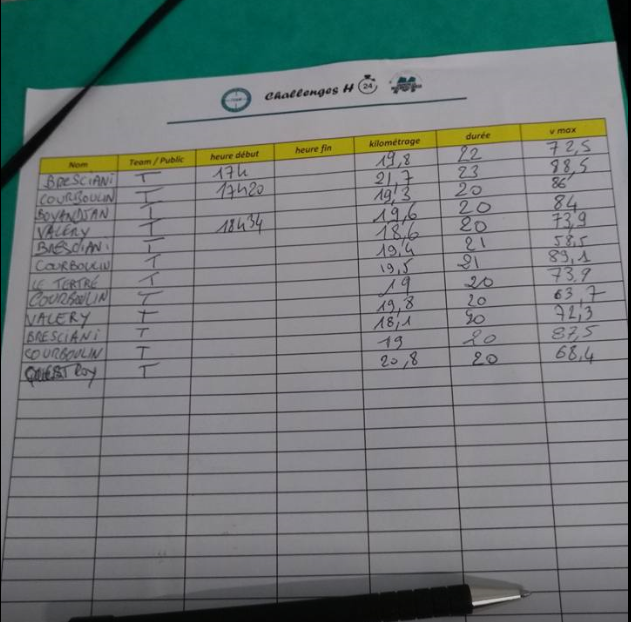 Challenges H 24
Nom Team / Public heure début heure fin kilométrage durée v max
BRESCIANI T 17h 19,8 22 72,5
COURBOULIN T 17h20 21,7 23 88,5
BOYANDJAN T 19,3 20 86
VALERY T 18h34 19,6 20 84
BRESCIANI T 18,6 20 73,9
COURBOULIN T 19,4 21 58,5
LE TERTRE T 19,5 21 89,1
COURBOULIN T 19 20 73,9
VALERY T 19,8 20 63,7
BRESCIANI T 18,1 20 72,3
COURBOULIN T 19 20 87,5
T 20,8 20 68,4